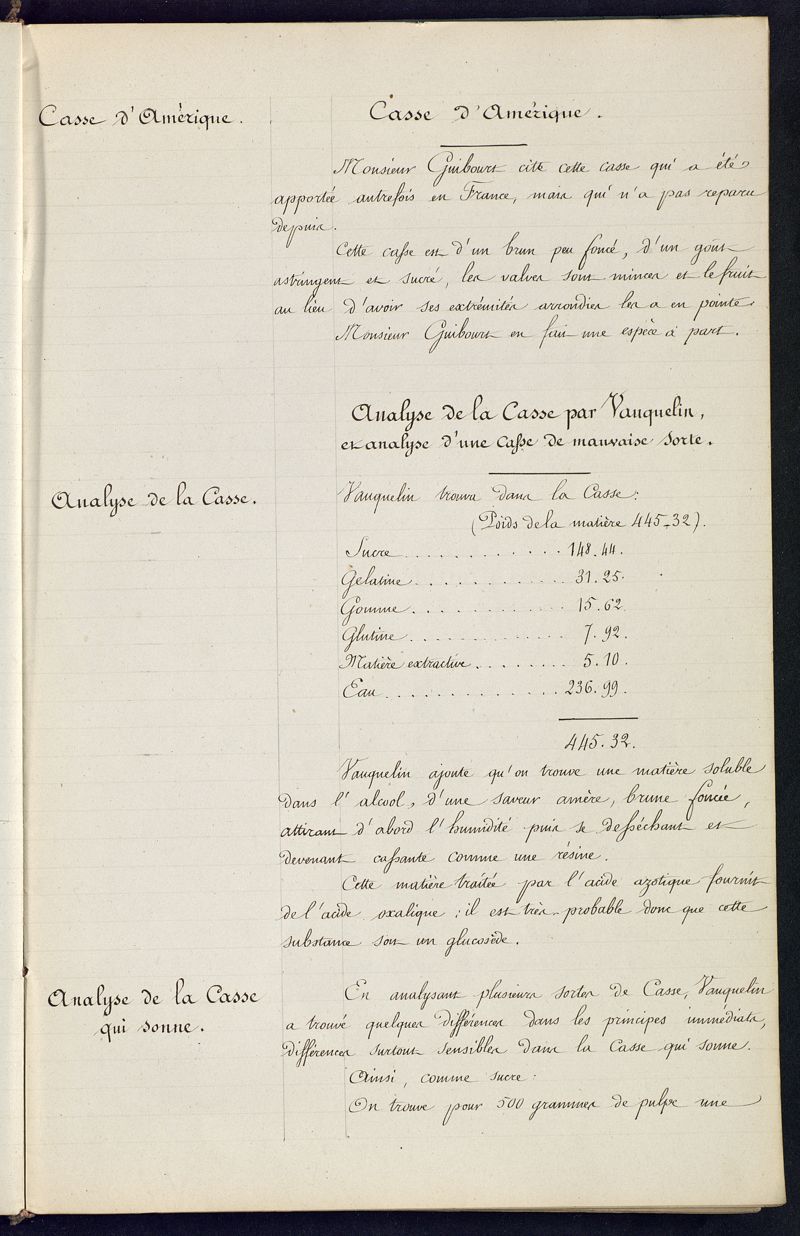 Casse d'Amérique.
Casse d'Amérique.
Monsieur Guibourt cite cette casse qui a été
apportée autrefois en France, mais qui n'a pas reparu
depuis.
Cette casse est d'un brun peu foncé, d'un gout
astringent et sucré, les valves sont minces et le fruit
au lieu d'avoir ses extrémités arrondies les a en pointe.
Monsieur Guibourt en fait une espèce à part.
Analyse de la Casse par Vauquelin,
et analyse d'une Casse de mauvaise sorte.
Analyse de la Casse.
Vauquelin trouva dans la Casse:
(Poids de la matière 445-32).
Sucre . . . . . . . . . . . . 148.44.
Gelatine . . . . . . . . . . . 31.25.
Gomme . . . . . . . . . . . 15.62.
Glutine . . . . . . . . . . . . 7.92.
Matière extractive . . . . . . . . 5.10.
Eau . . . . . . . . . . . . . 236.99.
445.32.
Vauquelin ajoute qu'on trouve une matière soluble
dans l'alcool, d'une saveur amère, brune foncée,
attirant d'abord l'humidité puis se desséchant et
devenant cassante comme une résine.
Cette matière traitée par l'acide azotique fournit
de l'acide oxalique; il est très-probable donc que cette
substance soit un glucoside.
Analyse de la Casse
qui sonne.
En analysant plusieurs sortes de Casse, Vauquelin
a trouvé quelques différences dans les principes immédiats,
différences surtout sensibles dans la Casse qui sonne.
Ainsi, comme sucre:
On trouve pour 500 grammes de pulpe une